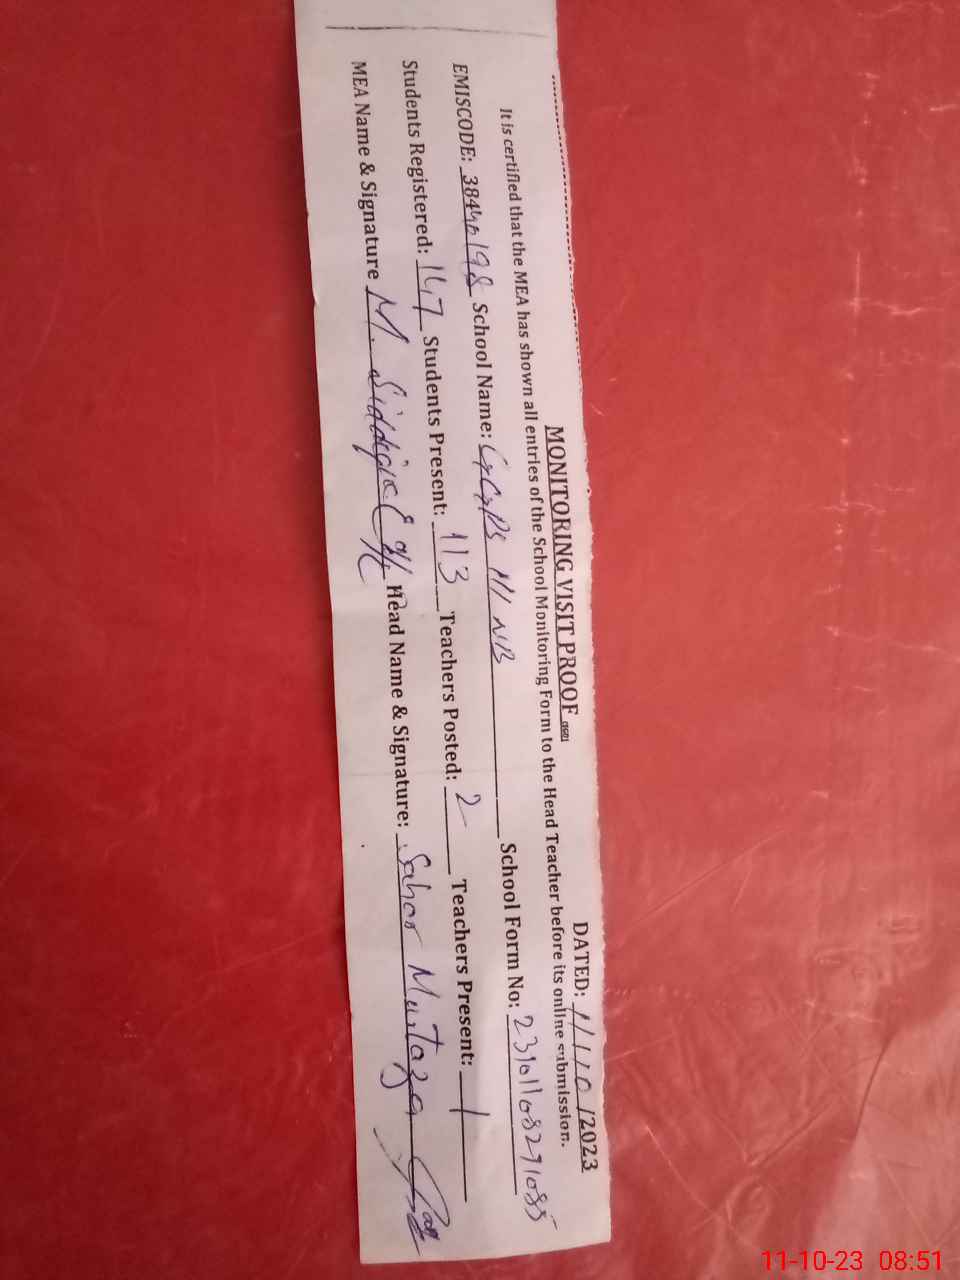 MONITORING VISIT PROOF DATED: 11/10/2023
It is certified that the MEA has shown all entries of the School Monitoring Form to the Head Teacher before its online submission.
EMISCODE: 38440198 School Name: GGPS 111 NB School Form No: 23101108271085
Students Registered: 147 Students Present: 113 Teachers Posted: 2 Teachers Present: 1
MEA Name & Signature M. Siddique Head Name & Signature: Sahar Murtaza
11-10-23 08:51